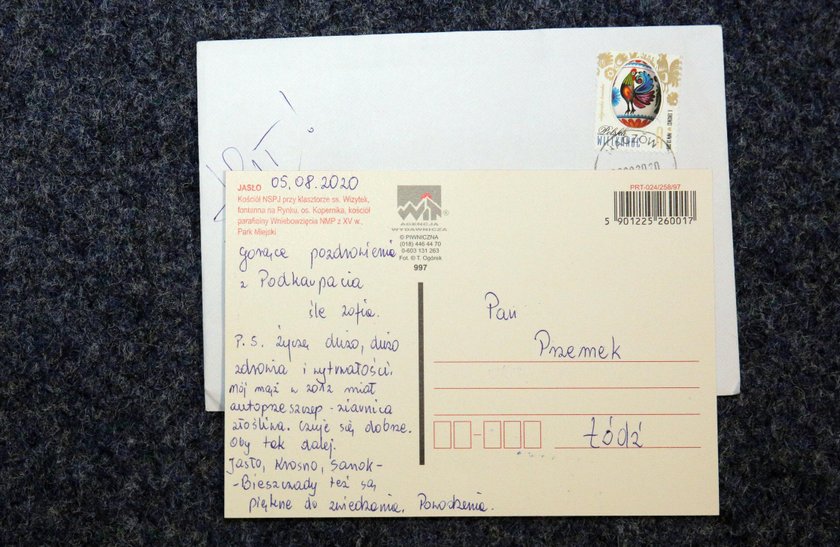 Polska
WIELKANOC
JASŁO 05.08.2020
Kościół NSPJ przy klasztorze ss. Wizytek,
fontanna na Rynku, os. Kopernika, kościół
parafialny Wniebowzięcia NMP z XV w.,
Park Miejski
WiT®
AGENCJA
WYDAWNICZA
© PIWNICZNA
(018) 446 44 70
0-603 131 263
Fot. © T. Ogórek
997
PRT-024/258/97
5 901225 260017
gorące pozdrowienia
z Podkarpacia
śle Zofia.
P.S. Życzę dużo, dużo
zdrowia i wytrwałości.
Mój mąż w 2012 miał
autoprzeszczep - ziarnica
złośliwa. Czuje się dobrze.
Oby tak dalej.
Jasło, Krosno, Sanok -
- Bieszczady też są
piękne do zwiedzania. Powodzenia.
Pan
Przemek
Łódź